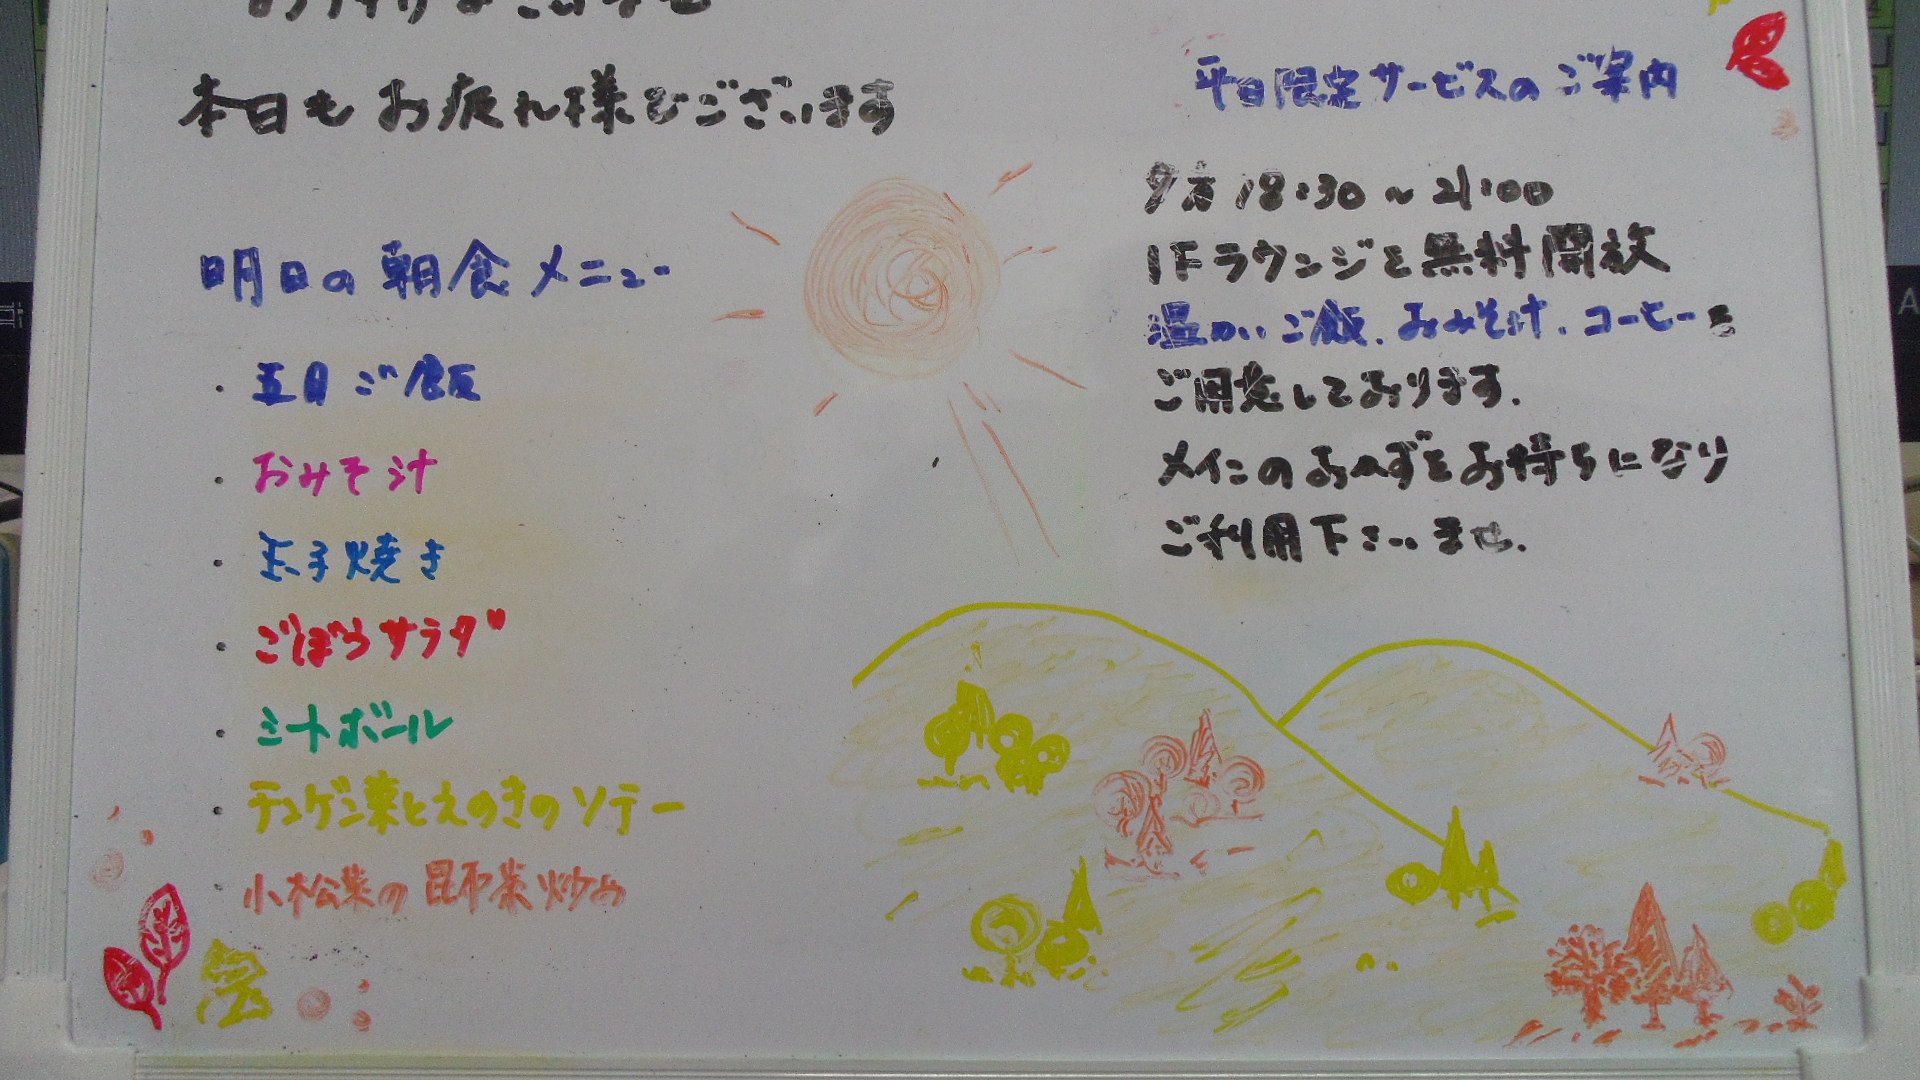 本日もお疲れ様でございます
明日の朝食メニュー
・五目ご飯
・おみそ汁
・玉子焼き
・ごぼうサラダ
・ミートボール
・チンゲン菜とえのきのソテー
・小松菜の昆布茶炒め
平日限定サービスのご案内
夕方18:30～21:00
1Fラウンジを無料開放
温かいご飯、おみそ汁、コーヒーを
ご用意しております。
メインのおかずをお持ちになり
ご利用下さいませ。